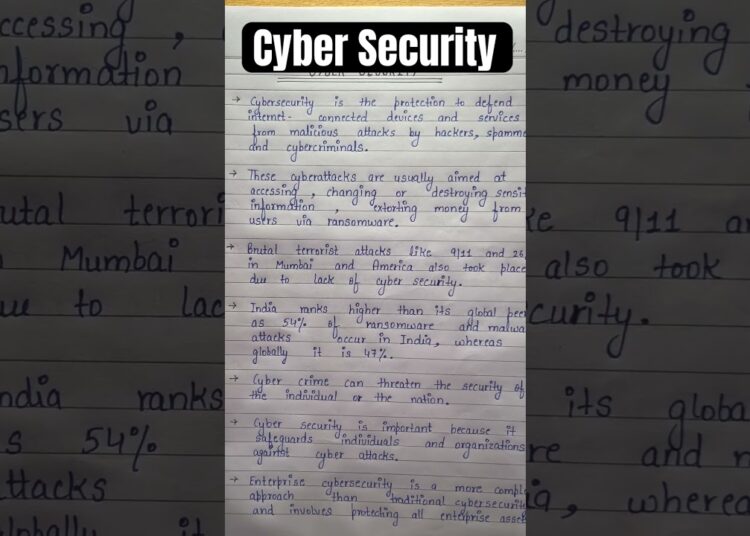 Cyber Security
→ Cybersecurity is the protection to defend
internet- connected devices and services
from malicious attacks by hackers, spamme
and cybercriminals.
→ These cyberattacks are usually aimed at
accessing, changing or destroying sensit
information, extorting money from
users via ransomware.
→ Brutal terrorist attacks like 9/11 and 26
in Mumbai and America also took place
due to lack of cyber security.
→ India ranks higher than its global pee
as 54% of ransomware and malwa
attacks occur in India, whereas
globally it is 47%.
→ Cyber crime can threaten the security of
the individual or the nation.
→ Cyber security is important because it
safeguards individuals and organizations
against cyber attacks.
→ Enterprise cybersecurity is a more compl
approach than traditional cybersecurit
and involves protecting all enterprise asset
ccessing,
nformation
sers via
utal terrori
Mumbai
ue to lac
ndia ranks
s 54%
ttacks
lobally it
destroying
money
ke 9/11 an
also took
curity.
its globa
re and m
ia, wherea